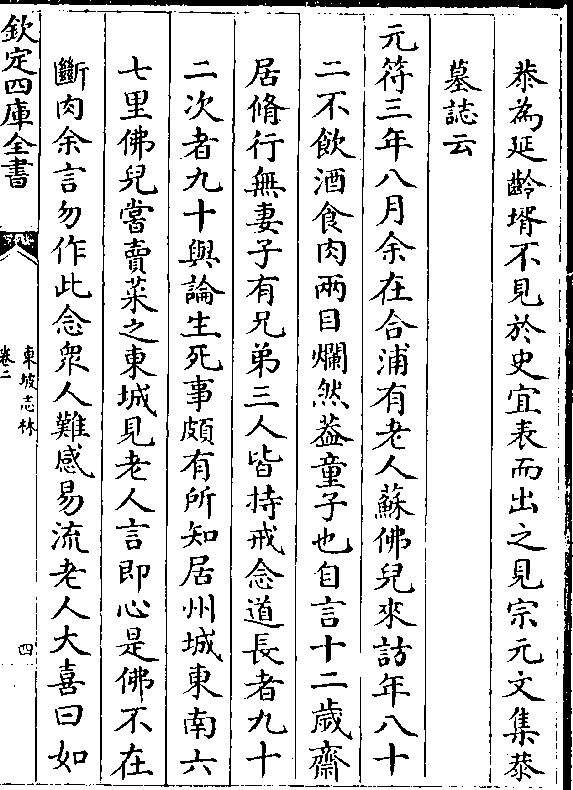 恭為延齡壻不見於史宜表而出之見宗元文集恭
墓誌云
元符三年八月余在合浦有老人蘇佛兒來訪年八十
二不飲酒食肉兩目爛然葢童子也自言十二歲齋
居脩行無妻子有兄弟三人皆持戒念道長者九十
二次者九十與論生死事頗有所知居州城東南六
七里佛兒嘗賣菜之東城見老人言即心是佛不在
斷肉余言勿作此念衆人難感易流老人大喜曰如
欽定四庫全書
東坡志林
卷二
四